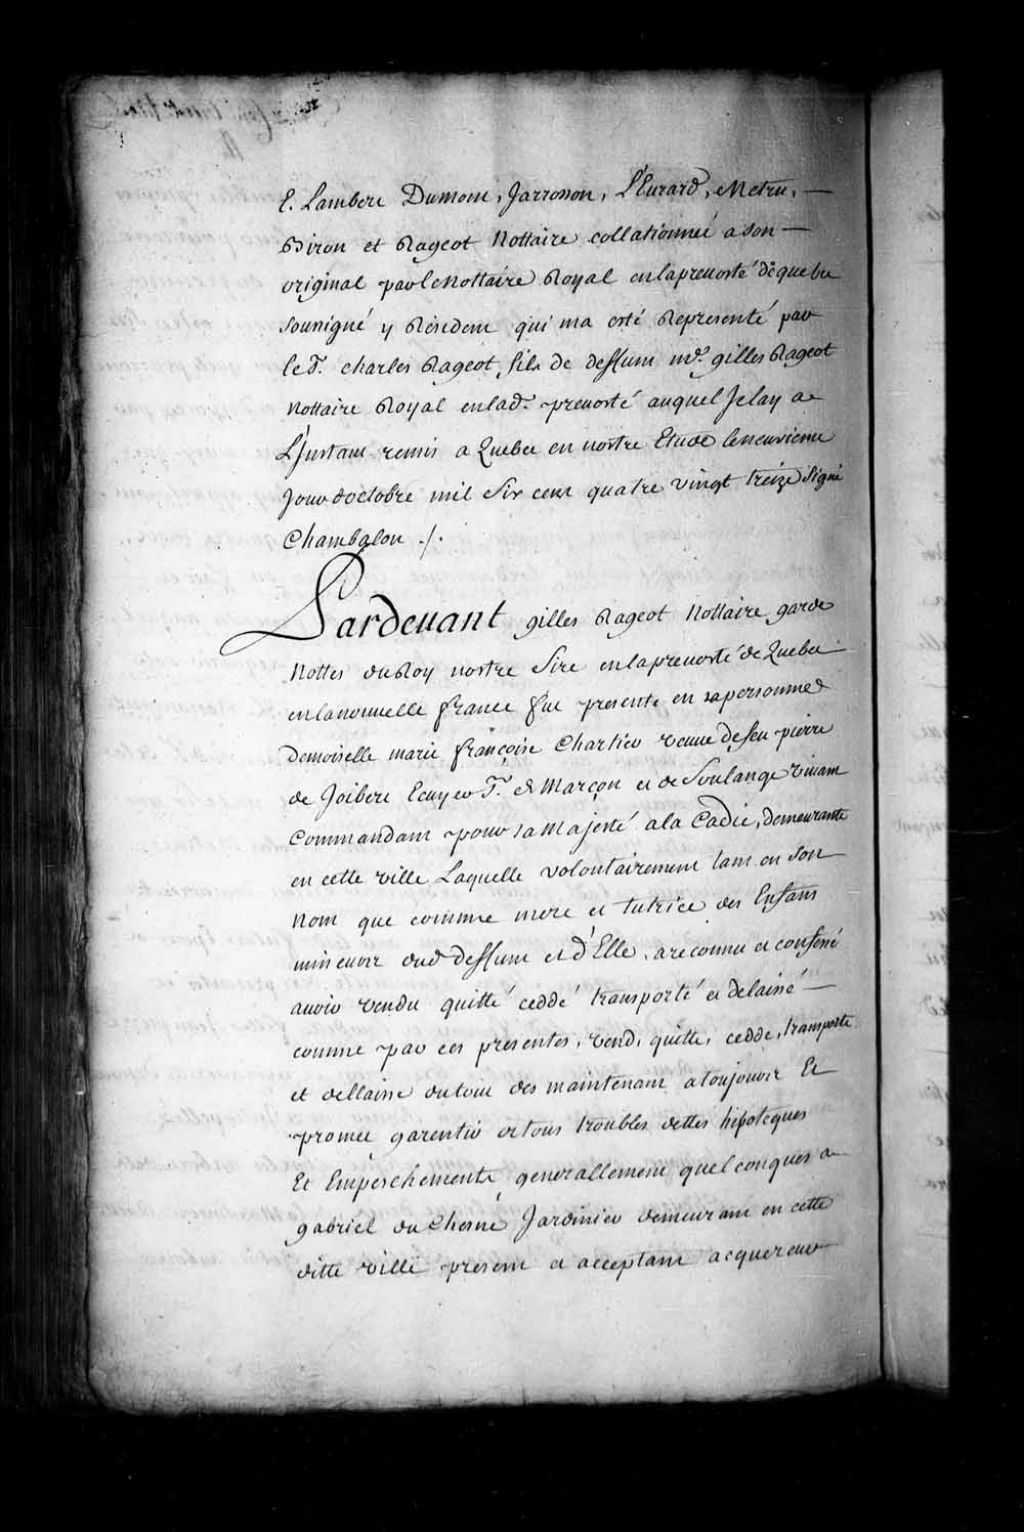 E. Lambert Dumont, Jarrosson, L'Eurard, Metru,
Biron et Rageot Nottaire collationneé a son
original par le Nottaire Royal en la preuosté de quebec
sousigné y Résident qui ma esté Representé par
le Sr. charles Rageot, fils de deffunt me. gilles Rageot
Nottaire Royal en lad. preuosté auquel Je lay a
L'Jnstant remis a Quebec en nostre Etude le neuvieme
Jour d'octobre mil six cent quatre vingt treize signé
Chambalon ./.
Pardeuant gilles Rageot Nottaire garde
Nottes du Roy nostre Sire en la preuosté de Quebec
en la nouuelle france fut presente en sa personne
Demoiselle marie françoise Chartier veuue de feu pierre
de Joibert Ecuyer Sr. de Marçon et de Soulange viuant
Commandant pour sa Majesté a la Cadie, demeurante
en cette ville Laquelle volontairement tant en son
Nom que comme mere et tutrice des Enfans
mineurs dud deffunt et d'Elle, a reconnu et confessé
auoir vendu quitté ceddé transporté et delaissé
comme par ces presentes, vend, quitte, cedde, transporte
et dellaisse du tout des maintenant a toujours Et
promet garentir de tous troubles dettes hipoteques
Et Empeschements generallement quelconques a
gabriel du Chesne Jardinier demeurant en cette
ditte ville present et acceptant acquereur